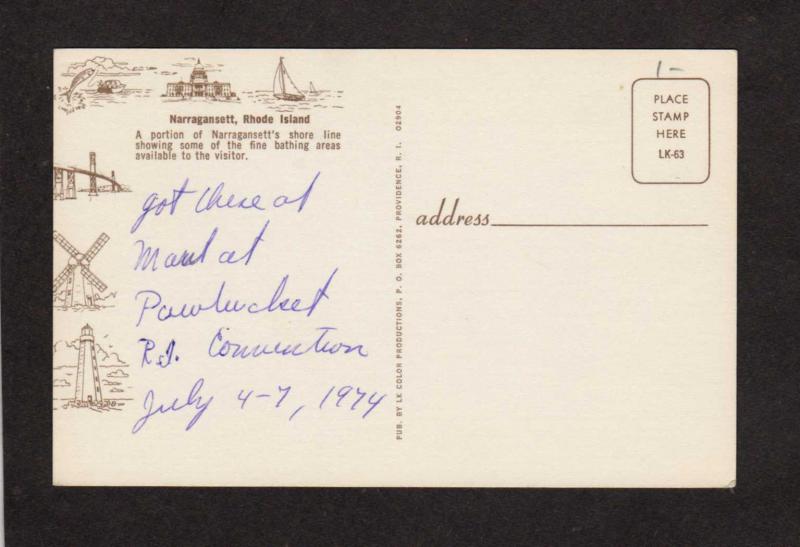 Narragansett, Rhode Island
A portion of Narragansett's shore line
showing some of the fine bathing areas
available to the visitor.
got these at
at
Pawtucket
R.I. Convention
July 4-7, 1974
PUB. BY LK COLOR PRODUCTIONS, P. O. BOX 6262, PROVIDENCE, R. I. 02904
1-
PLACE
STAMP
HERE
LK-63
address